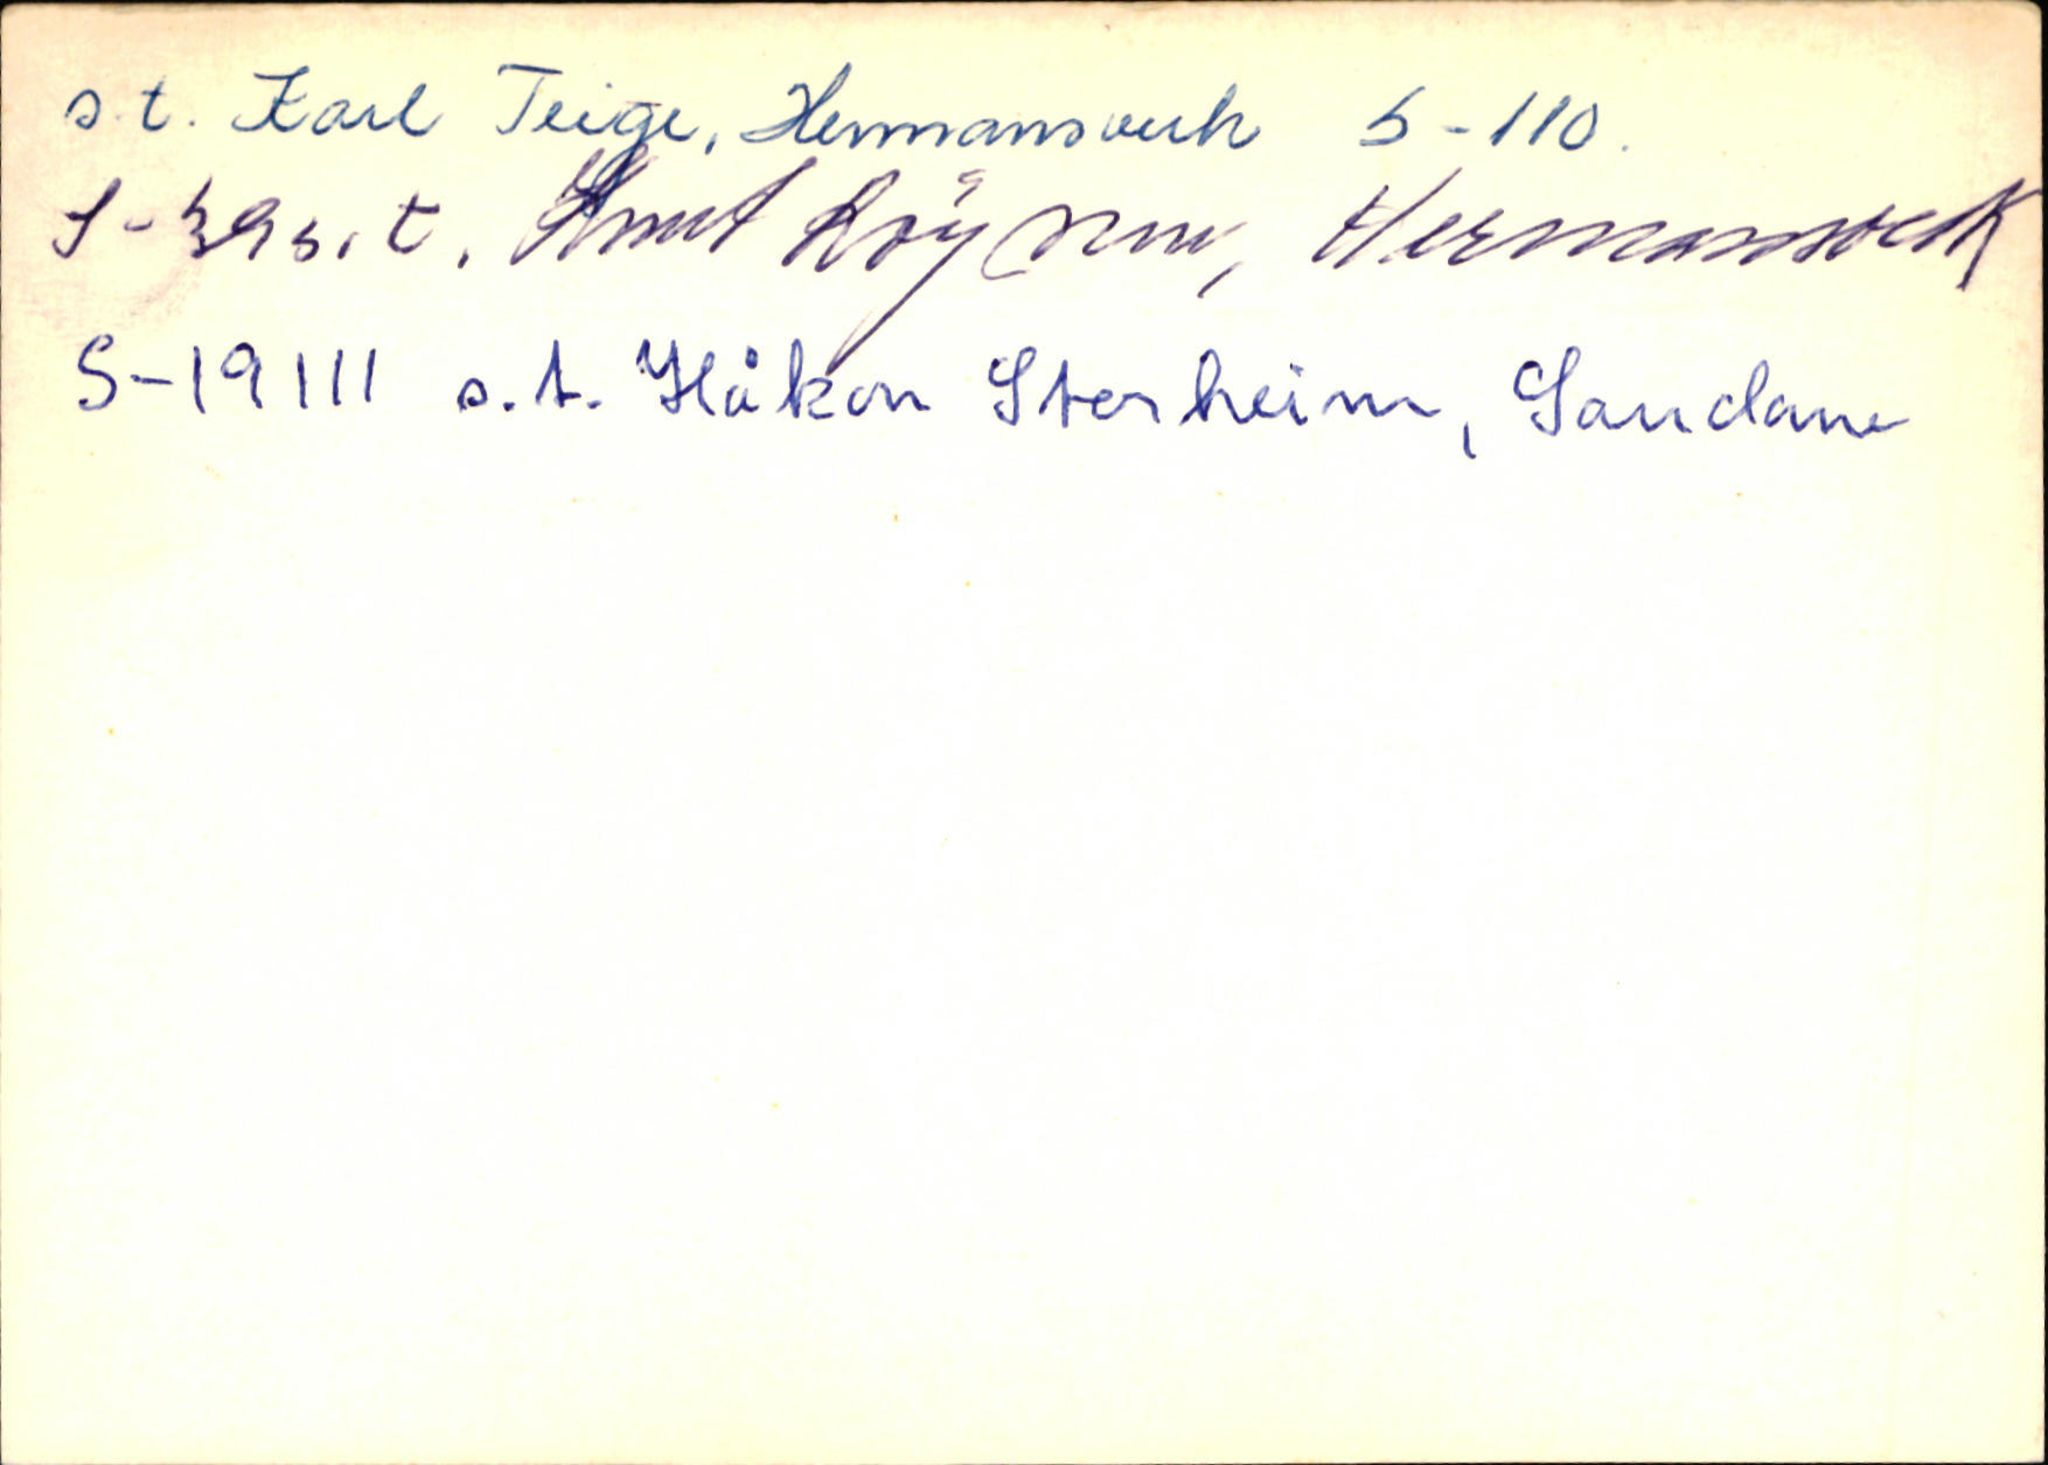 s.t. Karl Teige, Hermansverk S-110.
S-39 s.t. Knut Røysum, Hermansverk
S-19111 s.t. Håkon Storheim, Sandane